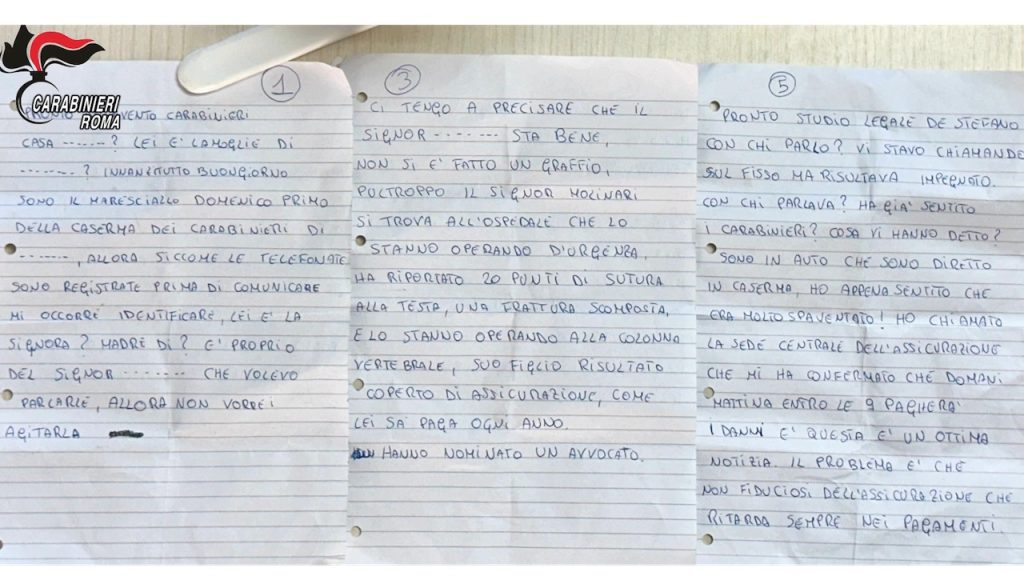 CARABINIERI
ROMA
1
PRONTO INTERVENTO CARABINIERI
CASA -------? LEI E' LA MOGLIE DI
--------? INNANZITUTTO BUONGIORNO
SONO IL MARESCIALLO DOMENICO PRIMO
DELLA CASERMA DEI CARABINIERI DI
-------, ALLORA SICCOME LE TELEFONATE
SONO REGISTRATE PRIMA DI COMUNICARE
MI OCCORRE IDENTIFICARE, LEI E' LA
SIGNORA? MADRE DI? E' PROPRIO
DEL SIGNOR -------- CHE VOLEVO
PARLARLE, ALLORA NON VORREI
AGITARLA
3
CI TENGO A PRECISARE CHE IL
SIGNOR ------- STA BENE,
NON SI E' FATTO UN GRAFFIO,
PULTROPPO IL SIGNOR MOLINARI
SI TROVA ALL'OSPEDALE CHE LO
STANNO OPERANDO D'URGENZA,
HA RIPORTATO 20 PUNTI DI SUTURA
ALLA TESTA, UNA FRATTURA SCOMPOSTA,
E LO STANNO OPERANDO ALLA COLONNA
VERTEBRALE, SUO FIGLIO RISULTATO
COPERTO DI ASSICURAZIONE, COME
LEI SA' PAGA OGNI ANNO.
HANNO NOMINATO UN AVVOCATO.
5
PRONTO STUDIO LEGALE DE STEFANO
CON CHI PARLO? VI STAVO CHIAMANDE
SUL FISSO MA RISULTAVA IMPEGNATO.
CON CHI PARLAVA? HA GIA' SENTITO
I CARABINIERI? COSA VI HANNO DETTO?
SONO IN AUTO CHE SONO DIRETTO
IN CASERMA, HO APPENA SENTITO CHE
ERA MOLTO SPAVENTATO! HO CHIAMATO
LA SEDE CENTRALE DELL'ASSICURAZIONE
CHE MI HA CONFERMATO CHE DOMANI
MATTINA ENTRO LE 9 PAGHERA'
I DANNI E' QUESTA E' UN OTTIMA
NOTIZIA. IL PROBLEMA E' CHE
NON FIDUCIOSI DELL'ASSICURAZIONE CHE
RITARDA SEMPRE NEI PAGAMENTI.